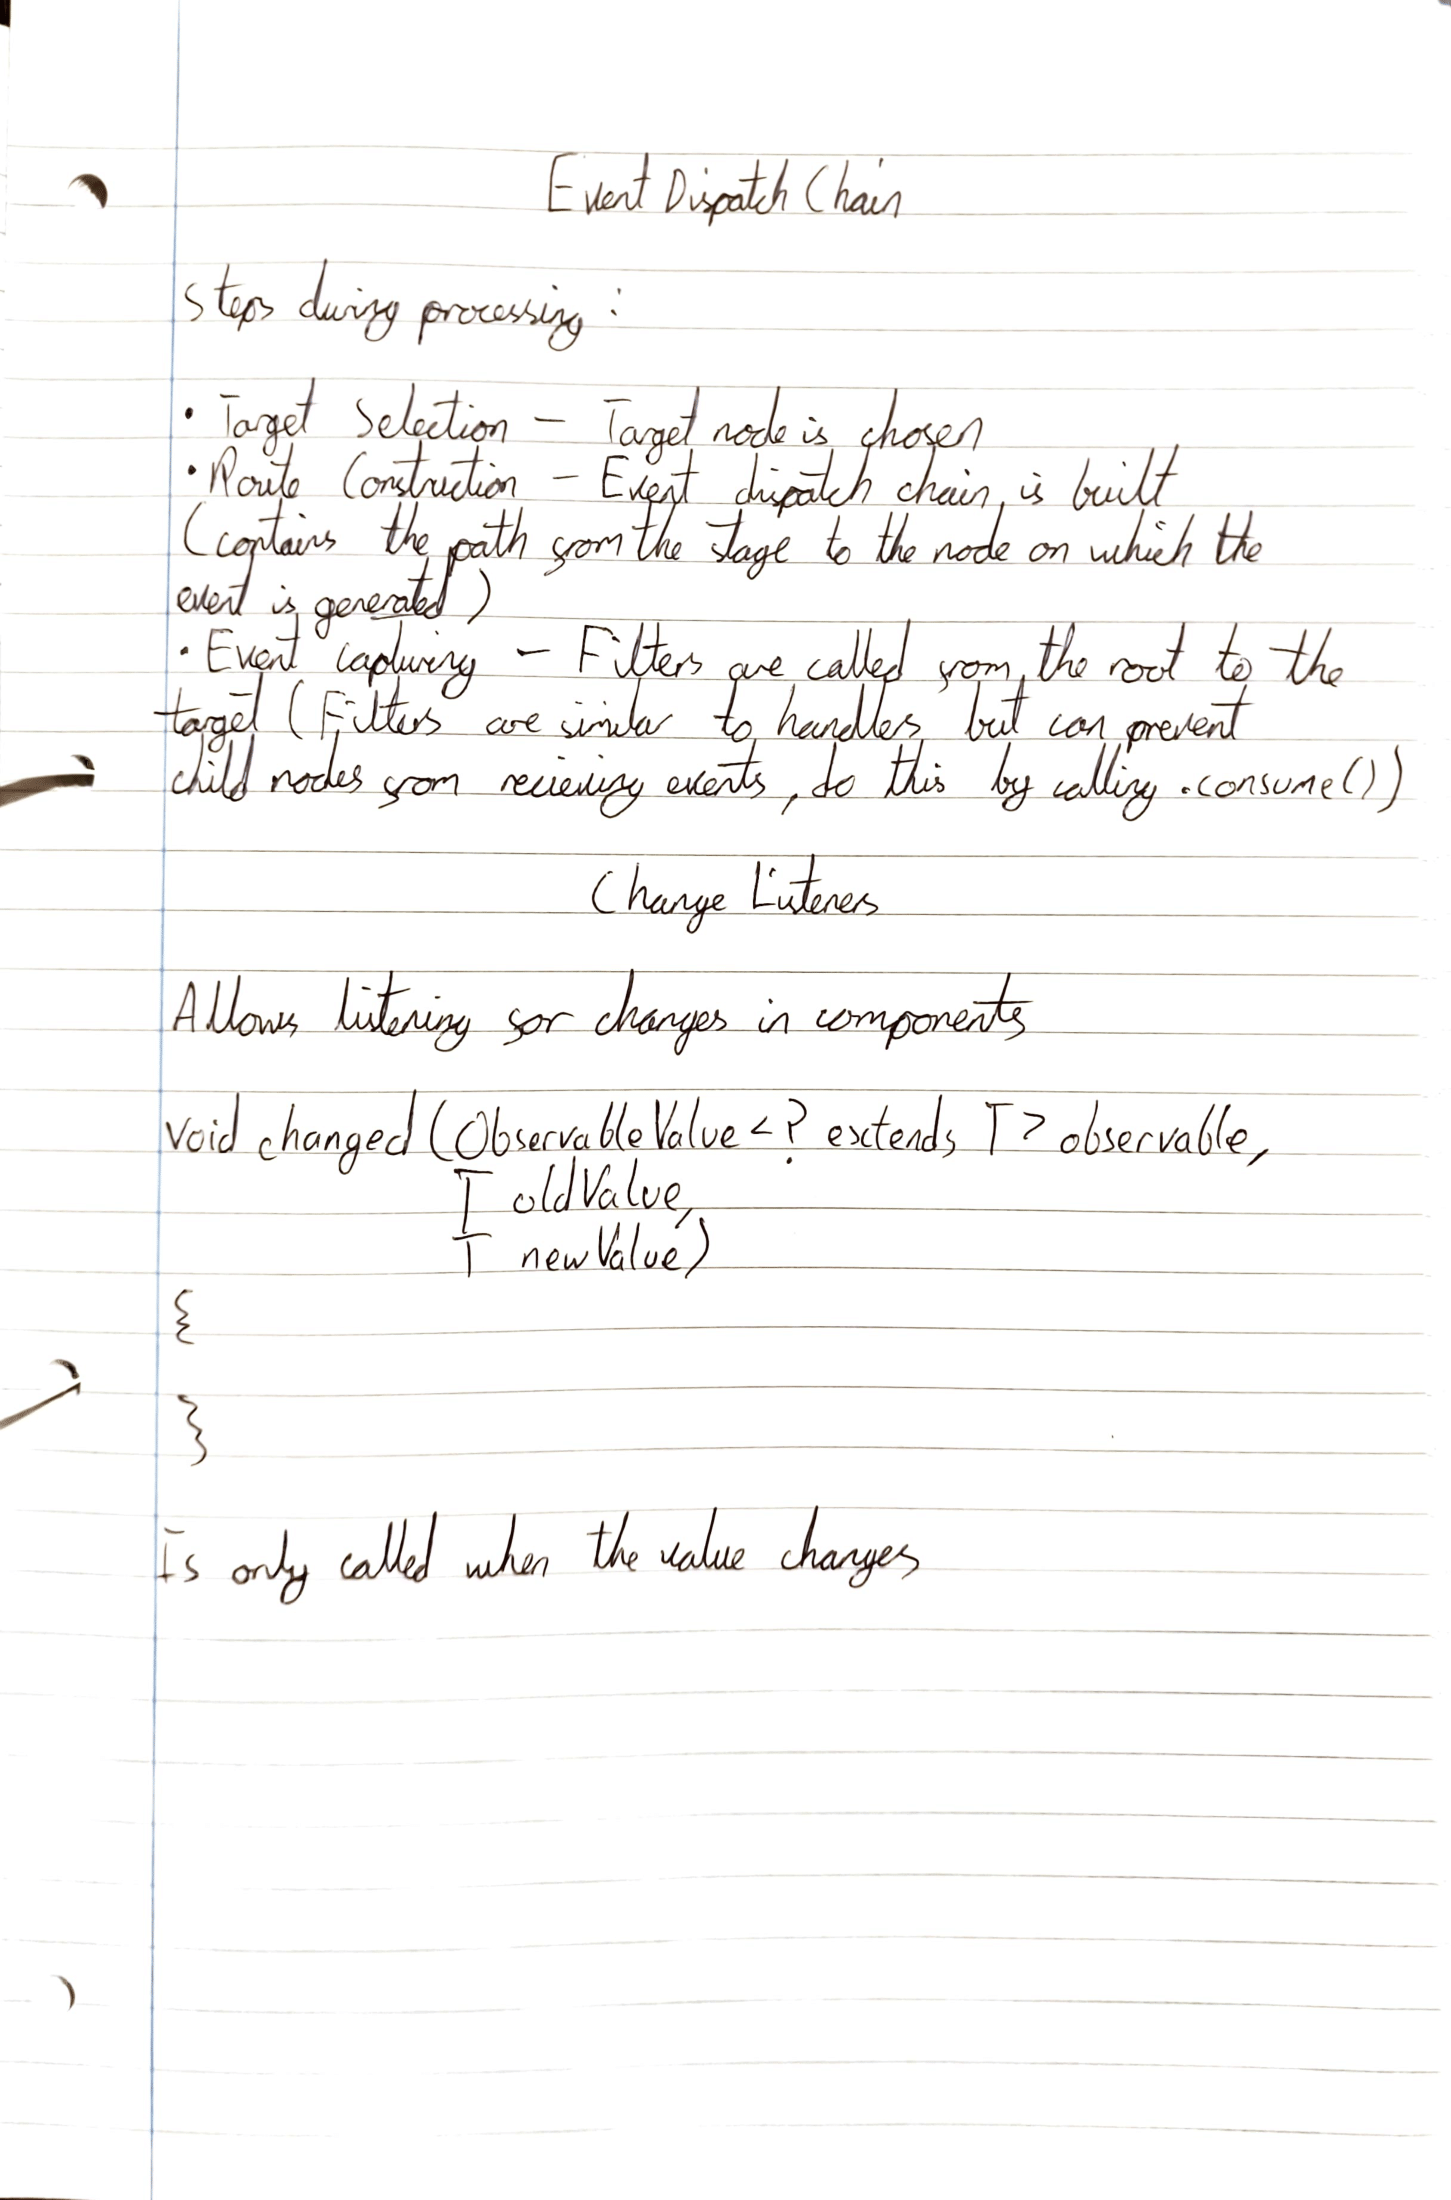 Event Dispatch Chain
Steps during processing:
• Target Selection – Target node is chosen
• Route Construction – Event dispatch chain is built
(contains the path from the stage to the node on which the
event is generated)
• Event capturing – Filters are called from the root to the
target (Filters are similar to handlers but can prevent
child nodes from recieving events, do this by calling .consume())
Change Listeners
Allows listening for changes in components
void changed (ObservableValue <? extends T> observable,
T oldValue,
T newValue)
{
}
Is only called when the value changes